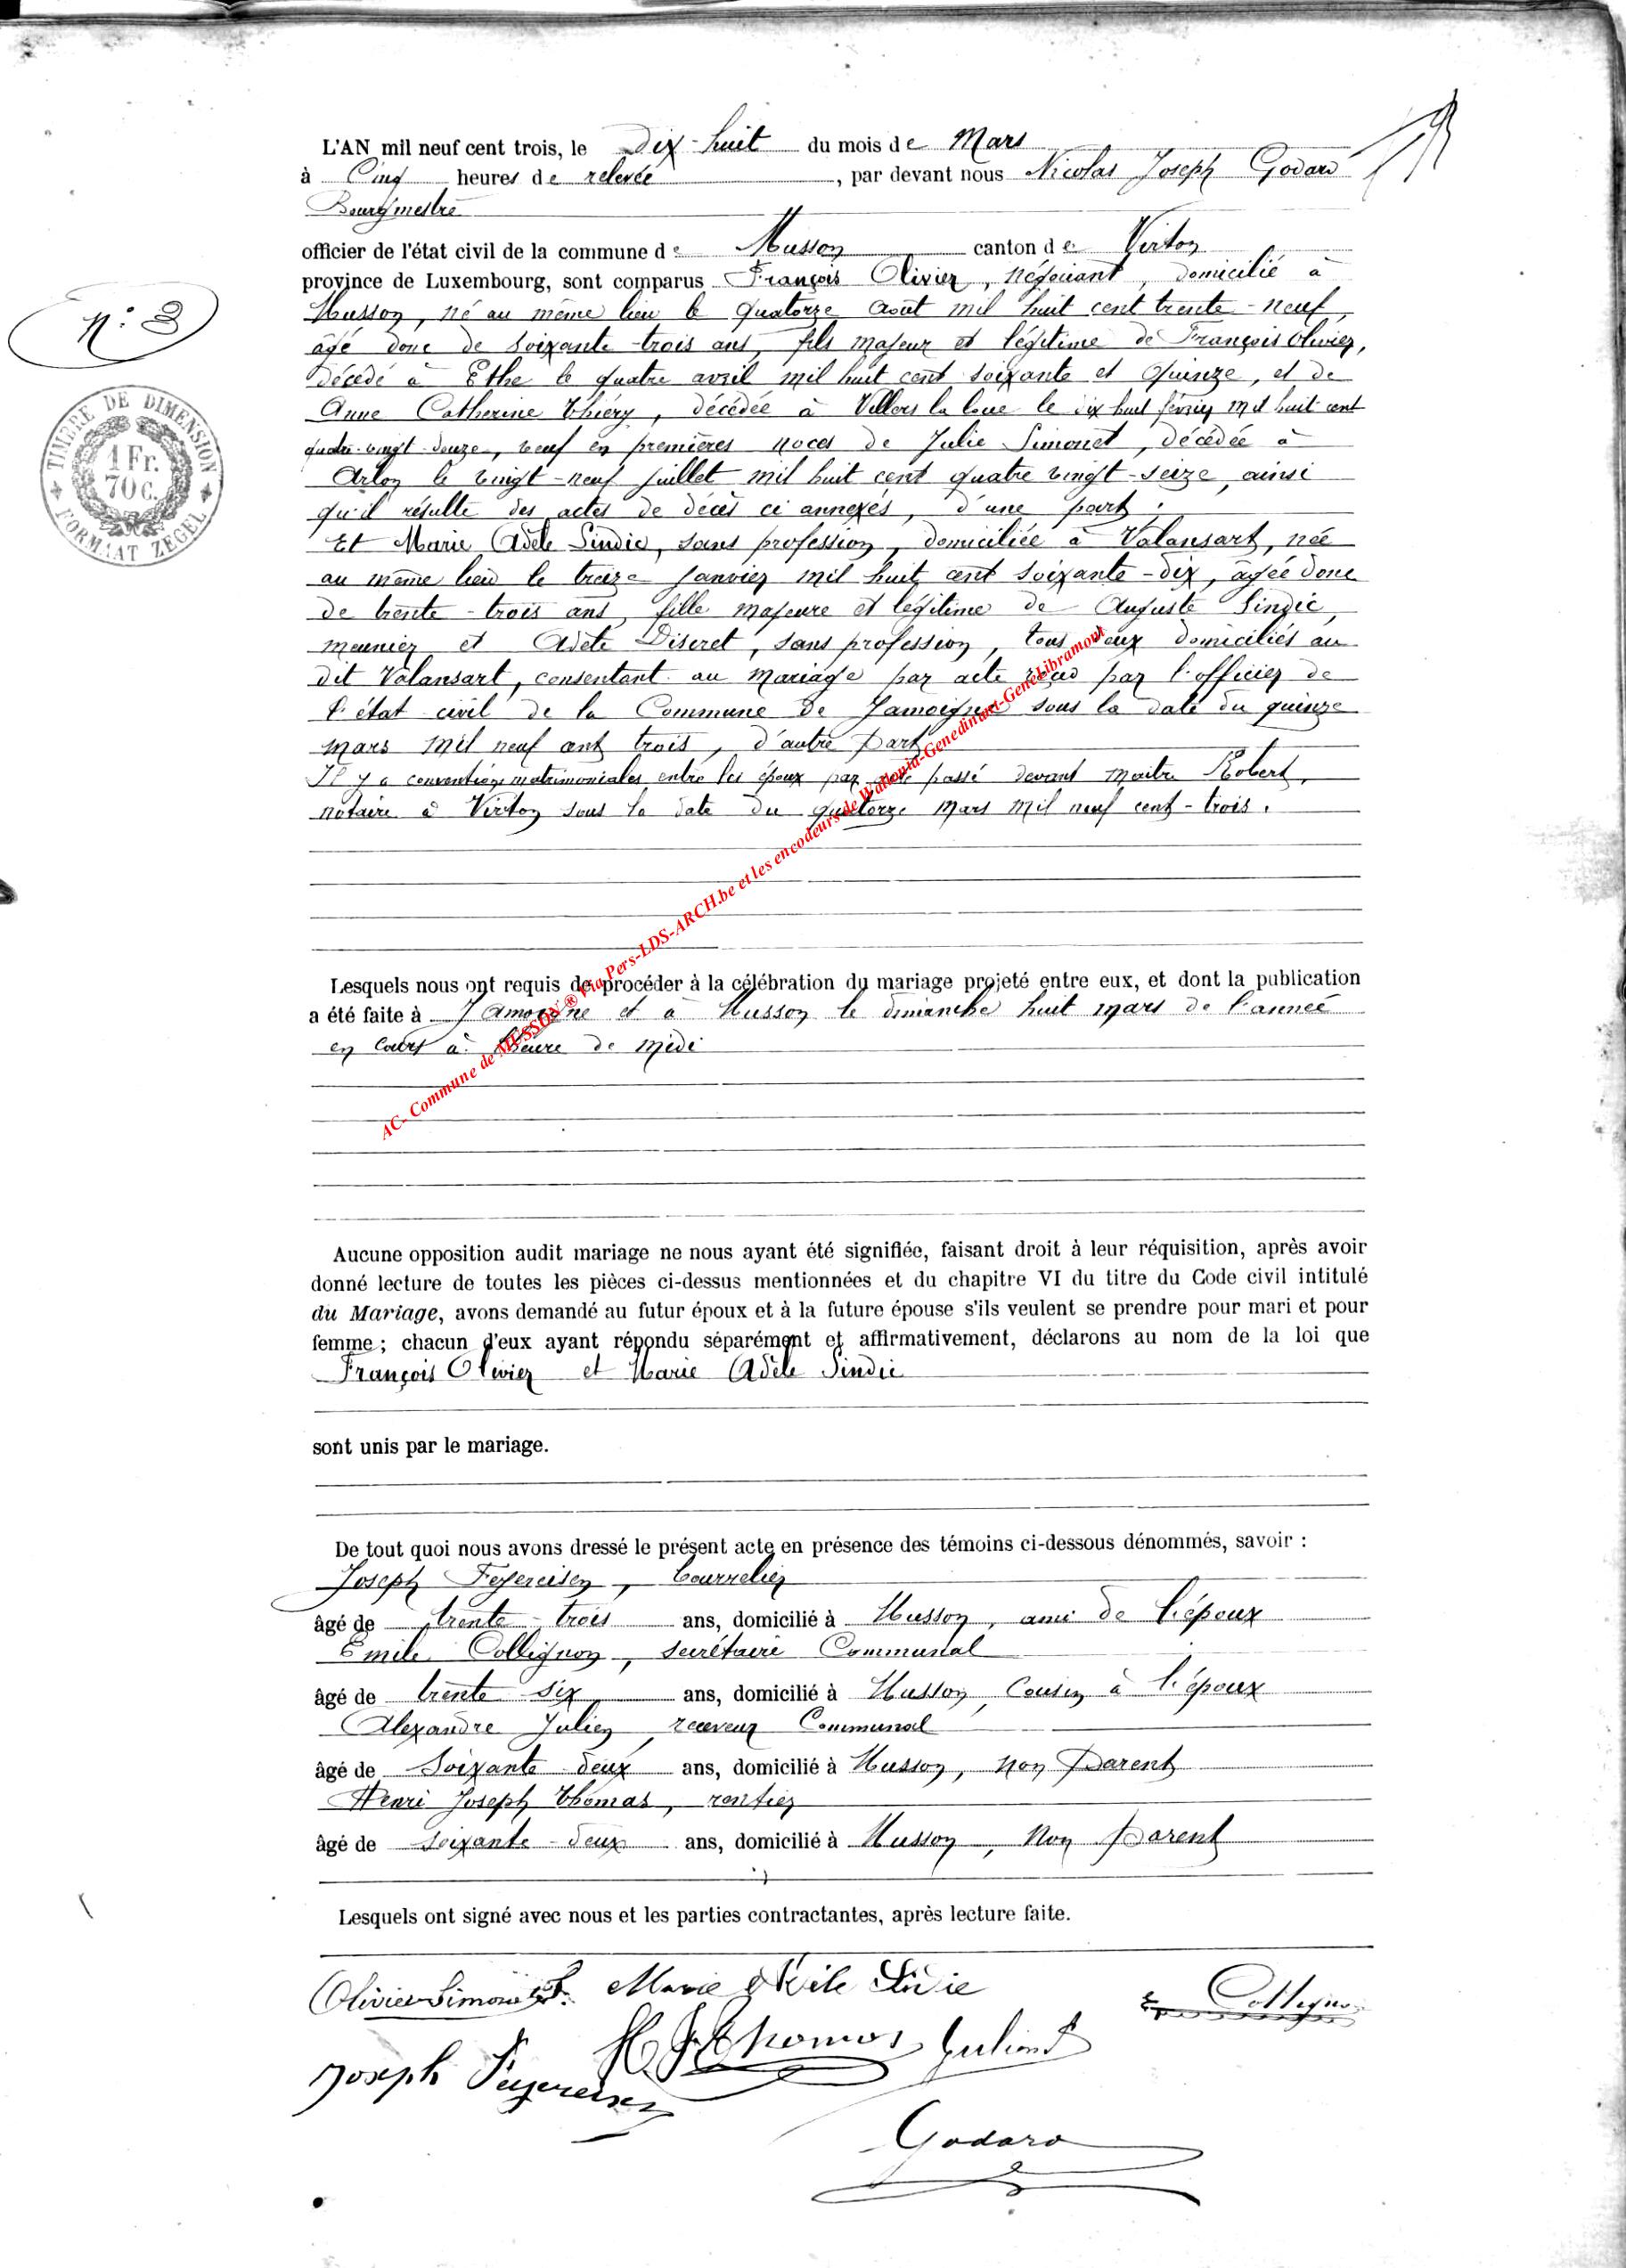 L'AN mil neuf cent trois, le Dix-huit du mois de Mars
à Cinq heures de relevée, par devant nous Nicolas Joseph Godard
Bourgmestre
officier de l'état civil de la commune de Musson canton de Virton
province de Luxembourg, sont comparus François Olivier, négociant, domicilié à
Musson, né au même lieu le quatorze août mil huit cent trente-neuf,
âgé donc de soixante-trois ans, fils majeur et légitime de François Olivier,
décédé à Ethe le quatre avril mil huit cent soixante et quinze, et de
Anne Catherine Thiéry, décédée à Villers la loue le dix huit février mil huit cent
quatre-vingt-douze, veuf en premières noces de Julie Simonet, décédée à
Arlon le vingt-neuf juillet mil huit cent quatre vingt-seize, ainsi
qu'il résulte des actes de décès ci annexés, d'une part;
Et Marie Adèle Sindic, sans profession, domiciliée à Valansart, née
au même lieu le treize janvier mil huit cent soixante-dix, âgée donc
de trente-trois ans, fille majeure et légitime de Auguste Sindic,
meunier et Adèle Discret, sans profession, tous deux domiciliés au
dit Valansart, consentant au mariage par acte reçu par l'officier de
l'état civil de la Commune de Jamoigne sous la date du quinze
mars mil neuf cent trois, d'autre part
Il y a conventions matrimoniales entre les époux par acte passé devant maître Robert,
notaire à Virton sous la date du quatorze mars mil neuf cent-trois.
Lesquels nous ont requis de procéder à la célébration du mariage projeté entre eux, et dont la publication
a été faite à Jamoigne et à Musson le dimanche huit mars de l'année
en cours à l'heure de midi
Aucune opposition audit mariage ne nous ayant été signifiée, faisant droit à leur réquisition, après avoir
donné lecture de toutes les pièces ci-dessus mentionnées et du chapitre VI du titre du Code civil intitulé
du Mariage, avons demandé au futur époux et à la future épouse s'ils veulent se prendre pour mari et pour
femme; chacun d'eux ayant répondu séparément et affirmativement, déclarons au nom de la loi que
François Olivier et Marie Adèle Sindic
sont unis par le mariage.
De tout quoi nous avons dressé le présent acte en présence des témoins ci-dessous dénommés, savoir :
Joseph Feyereisen, bourrelier
âgé de trente-trois ans, domicilié à Musson, ami de l'époux
Emile Collignon, secrétaire Communal
âgé de trente six ans, domicilié à Musson, Cousin à l'époux
Alexandre Julien, receveur Communal
âgé de Soixante deux ans, domicilié à Musson, non Parent
Henri Joseph Thomas, rentier
âgé de soixante-deux ans, domicilié à Musson, Non Parent
Lesquels ont signé avec nous et les parties contractantes, après lecture faite.
Olivier-Simonet. Marie Adèle Sindic
E Collignon
H J Thomas Julien
Joseph Feyereisen
Godard
n° 3
TIMBRE DE DIMENSION
1 Fr.
70 C.
FORMAAT ZEGEL
AC- Commune de MUSSON ® Via Pers-LDS-ARCH.be et les encodeurs de Wallonia-Genedinant-GeneLibramont